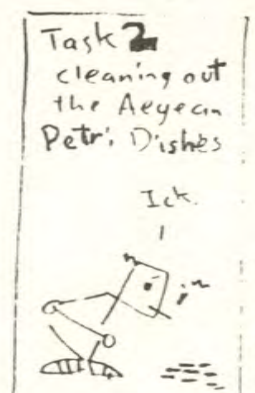 Task 2
cleaning out
the Aegean
Petri Dishes
Ick.